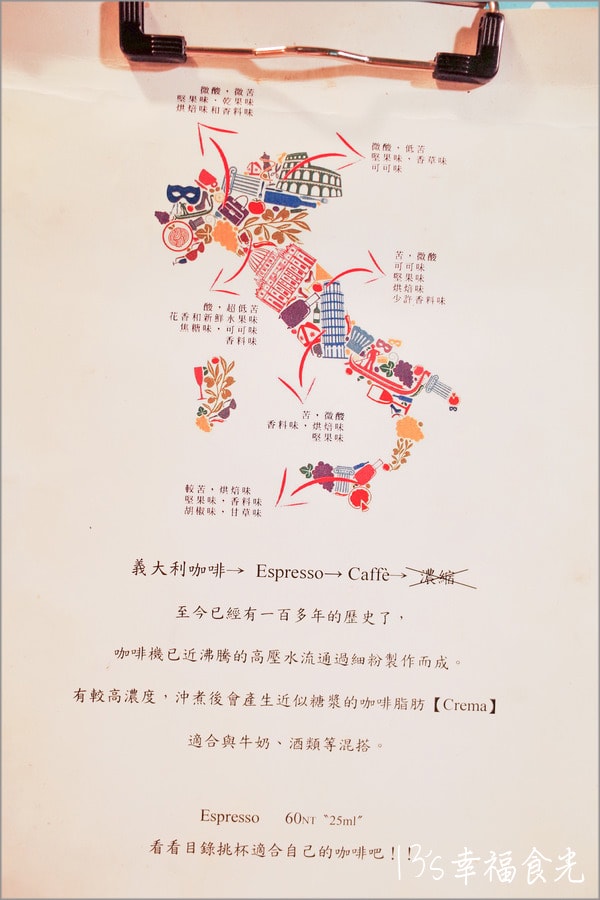 微酸，微苦
堅果味，乾果味
烘焙味和香料味
微酸，低苦
堅果味，香草味
可可味
苦，微酸
可可味
堅果味
烘焙味
少許香料味
酸，超低苦
花香和新鮮水果味
焦糖味，可可味
香料味
苦，微酸
香料味，烘焙味
堅果味
較苦，烘焙味
堅果味，香料味
胡椒味，甘草味
義大利咖啡→ Espresso→ Caffè→ 濃縮
至今已經有一百多年的歷史了，
咖啡機已近沸騰的高壓水流通過細粉製作而成。
有較高濃度，沖煮後會產生近似糖漿的咖啡脂肪【Crema】
適合與牛奶、酒類等混搭。
Espresso 60NT〝25ml〞
看看目錄挑杯適合自己的咖啡吧！！
13's幸福食光